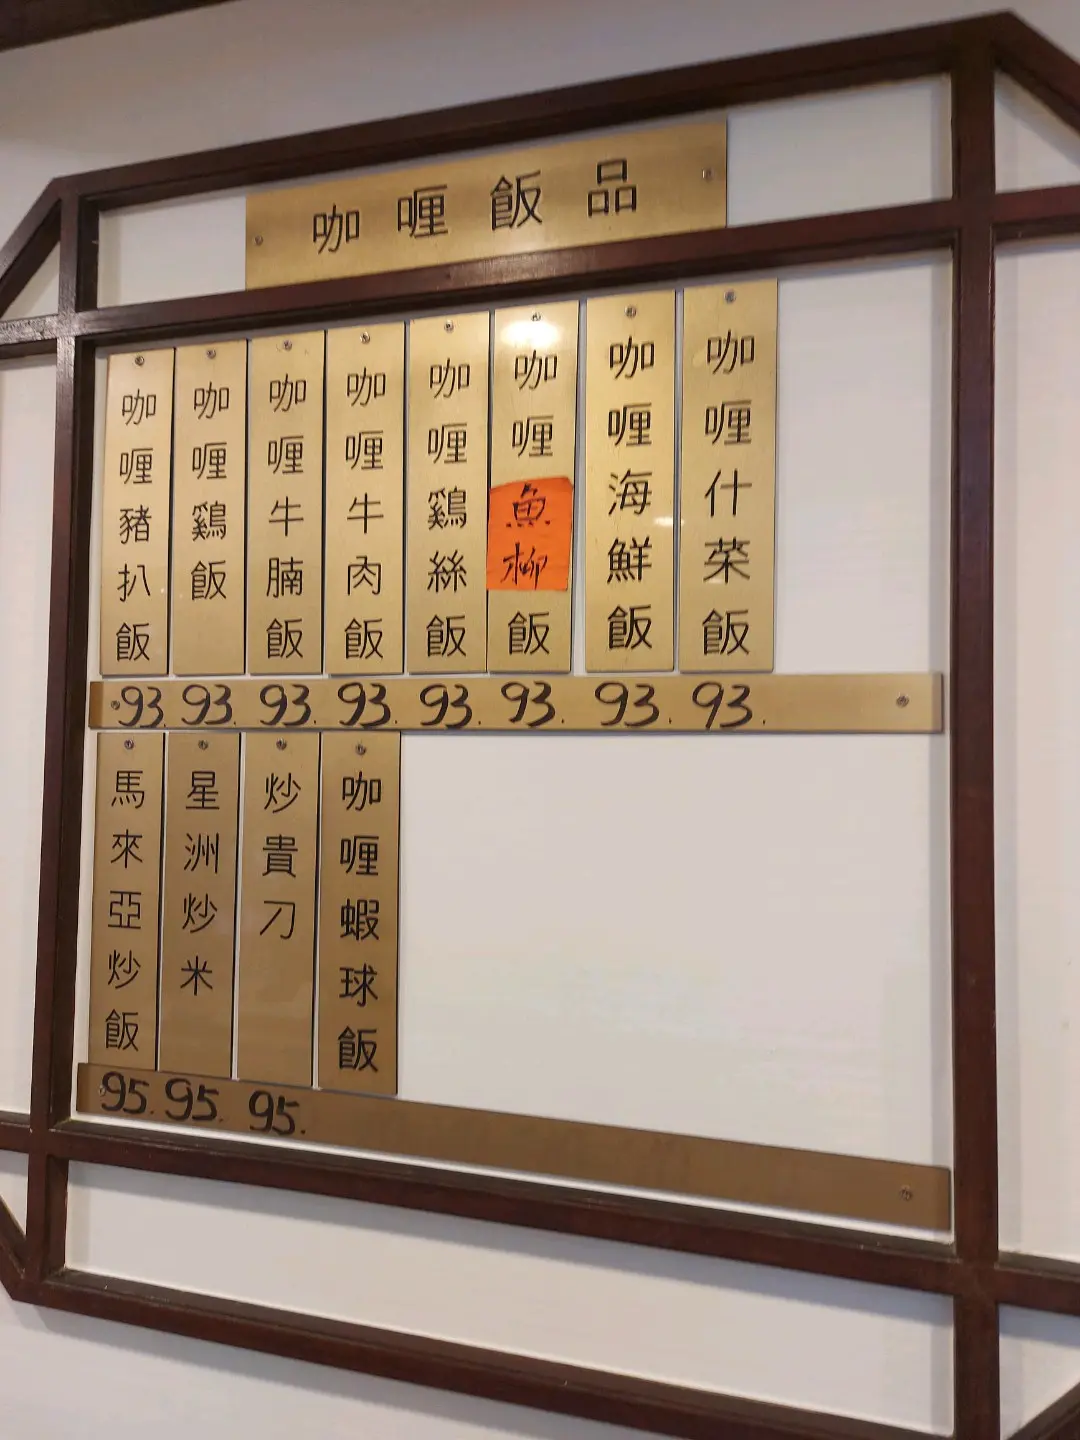 咖喱飯品
咖喱豬扒飯
咖喱鷄飯
咖喱牛腩飯
咖喱牛肉飯
咖喱鷄絲飯
咖喱魚柳飯
咖喱海鮮飯
咖喱什菜飯
93. 93. 93. 93. 93. 93. 93. 93.
馬來亞炒飯
星洲炒米
炒貴刀
咖喱蝦球飯
95. 95. 95.